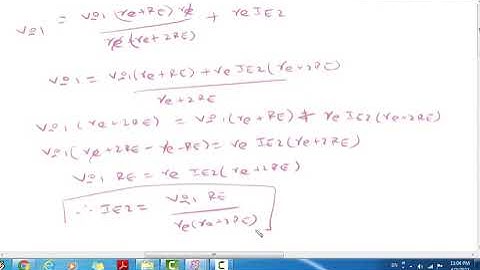 Vid1 = Vid1 (re+RE) re / re (re+2RE) + re IE2
Vid1 = Vid1(re+RE) + re IE2(re+2RE) / re+2RE
Vid1 (re+2RE) = Vid1(re+RE) + re IE2(re+2RE)
Vid1(re+2RE-re-RE) = re IE2(re+2RE)
Vid1 RE = re IE2(re+2RE)
∴ IE2 = Vid1 RE / re(re+2RE)
EN
11:06 PM